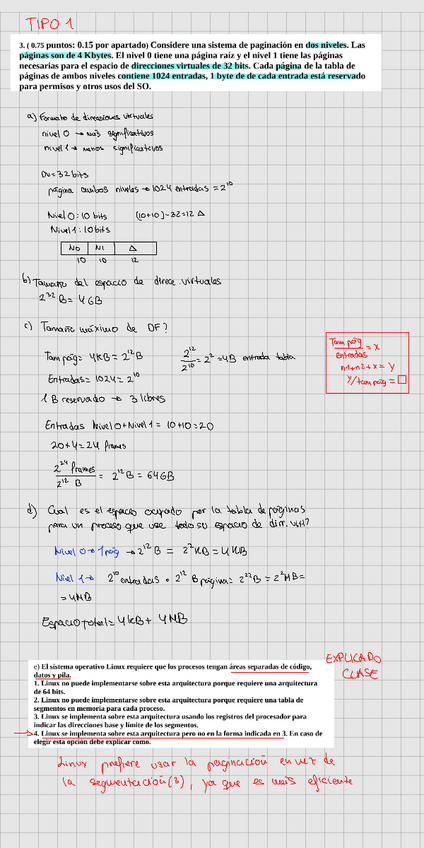 TIPO 1
3. ( 0.75 puntos: 0.15 por apartado) Considere una sistema de paginación en dos niveles. Las
páginas son de 4 Kbytes. El nivel 0 tiene una página raíz y el nivel 1 tiene las páginas
necesarias para el espacio de direcciones virtuales de 32 bits. Cada página de la tabla de
páginas de ambos niveles contiene 1024 entradas, 1 byte de de cada entrada está reservado
para permisos y otros usos del SO.
a) Formato de direcciones virtuales
nivel 0 → más significativos
nivel 1 → menos significativos
DV = 32 bits
página ambos niveles → 1024 entradas = 2^10
Nivel 0: 10 bits (10+10)-32=12 Δ
Nivel 1: 10 bits
N0 N1 Δ
10 10 12
b) Tamaño del espacio de direcc. virtuales
2^32 B = 4 GB
c) Tamaño máximo de DF?
Tam pág = 4KB = 2^12 B 2^12/2^10 = 2^2 = 4B entrada tabla
Tam pág/Entradas = x
n1+n2+x = y
y/tam pág = □
Entradas = 1024 = 2^10
1 B reservado → 3 libres
Entradas Nivel 0 + Nivel 1 = 10+10=20
20+4=24 frames
2^24 frames/2^12 B = 2^12 B = 64GB
d) Cual es el espacio ocupado por la tabla de páginas
para un proceso que use todo su espacio de dirr. virt?
Nivel 0 → 1 pág → 2^12 B = 2^2 KB = 4KB
Nivel 1 → 2^10 entradas • 2^12 B página = 2^22 B = 2^2 MB =
= 4MB
Espacio total = 4KB + 4MB
e) El sistema operativo Linux requiere que los procesos tengan áreas separadas de código,
datos y pila.
EXPLICADO
CLASE
1. Linux no puede implementarse sobre esta arquitectura porque requiere una arquitectura
de 64 bits.
2. Linux no puede implementarse sobre esta arquitectura porque requiere una tabla de
segmentos en memoria para cada proceso.
3. Linux se implementa sobre esta arquitectura usando los registros del procesador para
indicar las direcciones base y límite de los segmentos.
4. Linux se implementa sobre esta arquitectura pero no en la forma indicada en 3. En caso de
elegir esta opción debe explicar como.
Linux prefiere usar la paginación en vez de
la segmentación (3), ya que es más eficiente